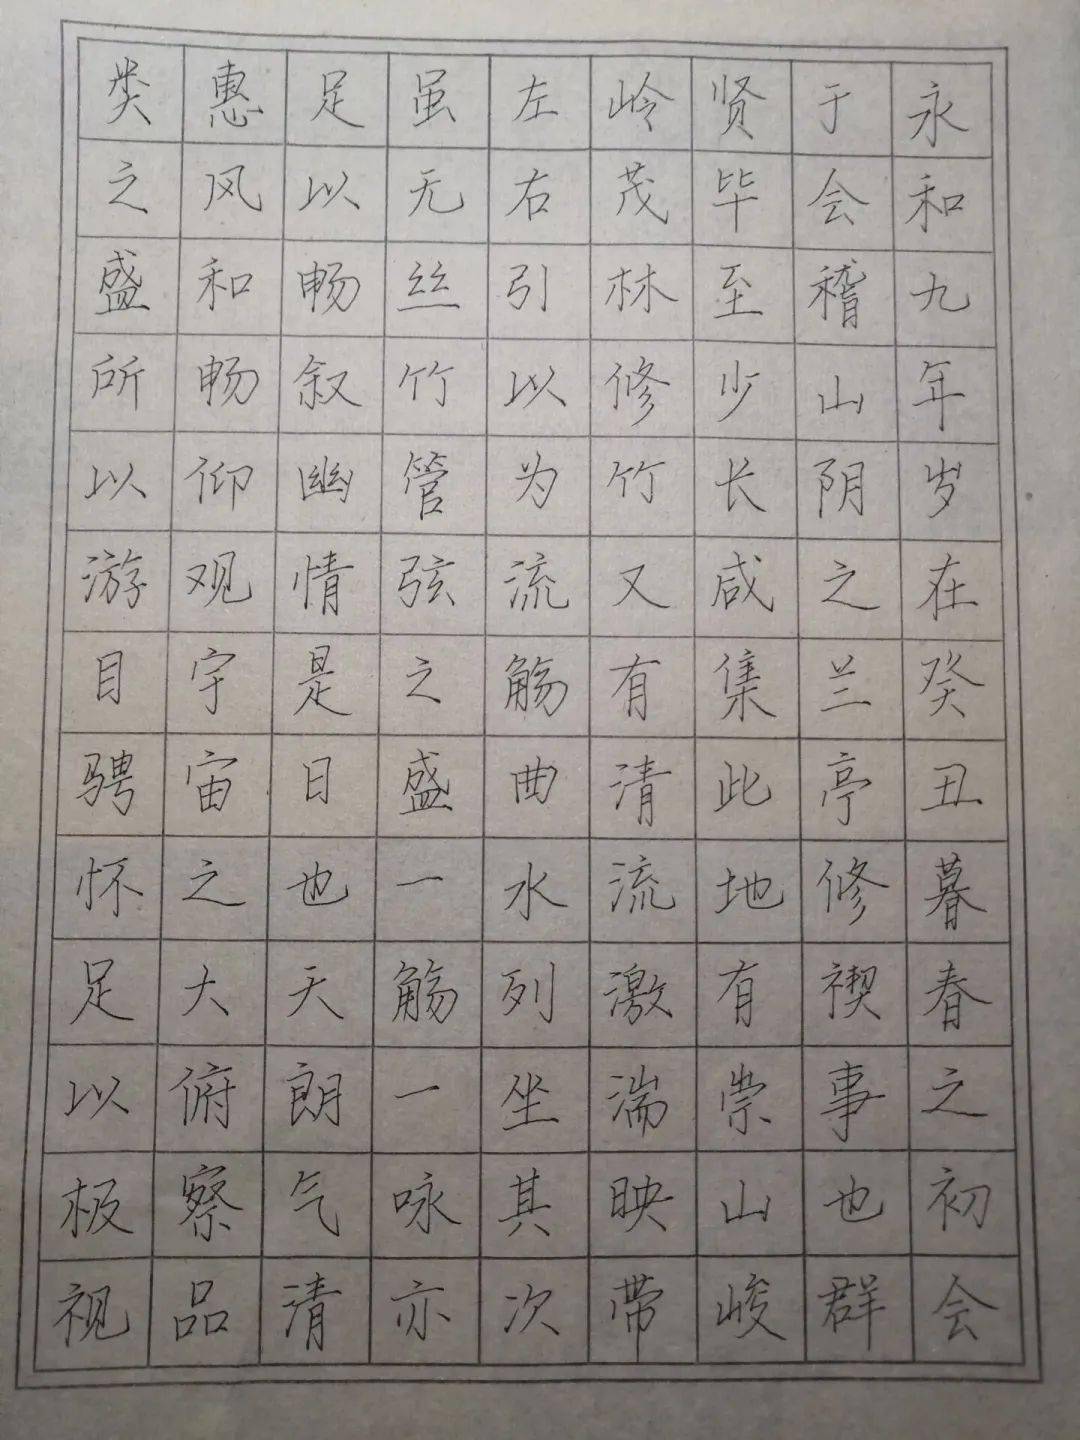 永和九年岁在癸丑暮春之初会
于会稽山阴之兰亭修禊事也群
贤毕至少长咸集此地有崇山峻
岭茂林修竹又有清流激湍映带
左右引以为流觞曲水列坐其次
虽无丝竹管弦之盛一觞一咏亦
足以畅叙幽情是日也天朗气清
惠风和畅仰观宇宙之大俯察品
类之盛所以游目骋怀足以极视